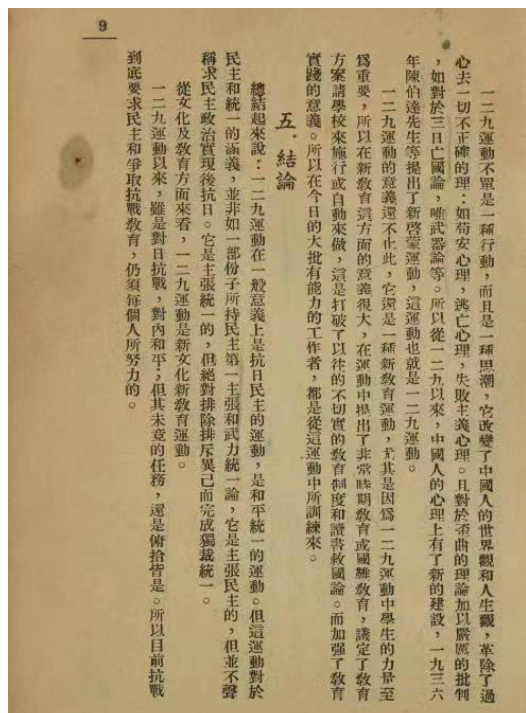 9
一二九運動不單是一種行動，而且是一種思潮，它改變了中國人的世界觀和人生觀，革除了過
心去一切不正確的理：如苟安心理，逃亡心理，失敗主義心理。且對於歪曲的理論加以嚴厲的批判
，如對於三日亡國論，唯武器論等。所以從一二九以來，中國人的心理上有了新的建設，一九三六
年陳伯達先生等提出了新啓蒙運動，這運動也就是一二九運動。
一二九運動的意義還不止此，它還是一種新敎育運動，尤其是因爲一二九運動中學生的力量至
爲重要，所以在新敎育這方面的意義很大，在運動中提出了非常時期敎育或國難敎育，議定了敎育
方案請學校來施行或自動來做，這是打破了以往的不切實的敎育制度和讀書救國論。而加强了敎育
實踐的意義。所以在今日的大批有能力的工作者，都是從這運動中所訓練來。
五．結論
總結起來說：一二九運動在一般意義上是抗日民主的運動，是和平統一的運動。但這運動對於
民主和統一的涵義，並非如一部份子所持民主第一主張和武力統一論，它是主張民主的，但並不聲
稱求民主政治實現後抗日。它是主張統一的，但絕對排除排斥異己而完成獨裁統一。
從文化及敎育方面來看，一二九運動是新文化新敎育運動。
一二九運動以來，雖是對日抗戰，對內和平，但其未竟的任務，還是俯拾皆是。所以目前抗戰
到底要求民主和爭取抗戰敎育，仍須每個人所努力的。